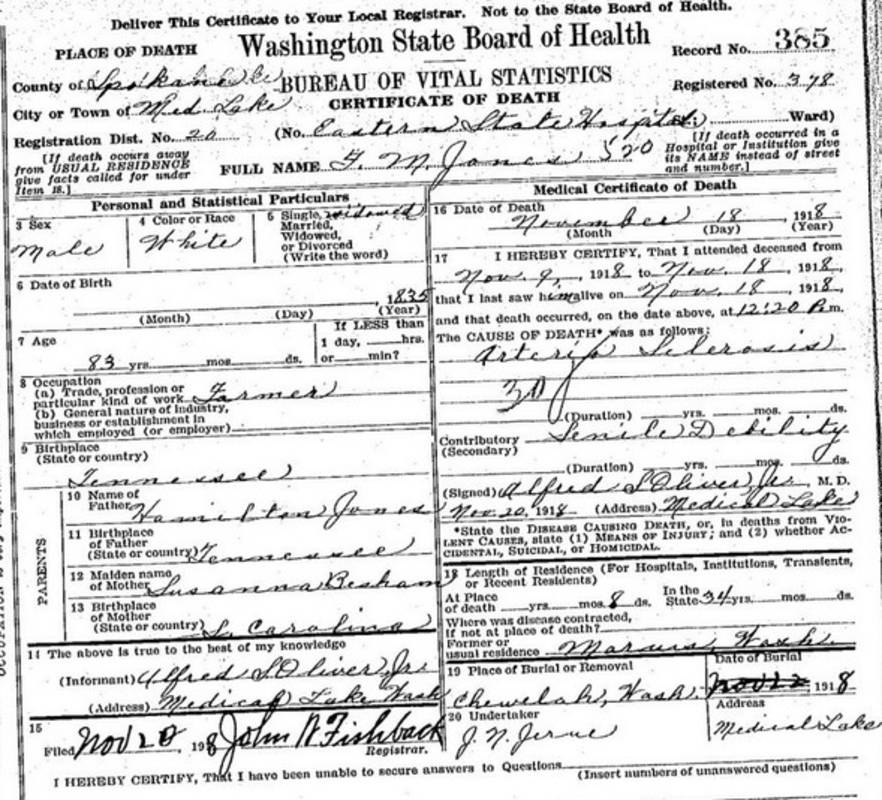 Deliver This Certificate to Your Local Registrar. Not to the State Board of Health.
PLACE OF DEATH Washington State Board of Health Record No. 385
County of Spokane BUREAU OF VITAL STATISTICS Registered No. 378
City or Town of Med. Lake CERTIFICATE OF DEATH
Registration Dist. No. 20 (No. Eastern State Hospital. Ward)
[If death occurs away from USUAL RESIDENCE give facts called for under Item 18.]
FULL NAME M. Jones 520
[If death occurred in a Hospital or Institution give its NAME instead of street and number.]
Personal and Statistical Particulars
3 Sex
Male
4 Color or Race
White
5 Single, Widowed
Married,
Widowed,
or Divorced
(Write the word)
6 Date of Birth
, 1835
(Month) (Day) (Year)
7 Age
83 yrs. mos. ds.
If LESS than
1 day, hrs.
or min?
8 Occupation
(a) Trade, profession or
particular kind of work Farmer
(b) General nature of industry,
business or establishment in
which employed (or employer)
9 Birthplace
(State or country)
Tennessee
PARENTS
10 Name of
Father Hamilton Jones
11 Birthplace
of Father
(State or country) Tennessee
12 Maiden name
of Mother Susanna
13 Birthplace
of Mother
(State or country) S. Carolina
14 The above is true to the best of my knowledge
(Informant) Alfred S Oliver, Jr.
(Address) Medical Lake Wash
15
Filed Nov 20, 1918 John W Fishback
Registrar.
Medical Certificate of Death
16 Date of Death
November 18, 1918
(Month) (Day) (Year)
17 I HEREBY CERTIFY, That I attended deceased from
Nov. 9, 1918, to Nov. 18, 1918,
that I last saw him alive on Nov. 18, 1918,
and that death occurred, on the date above, at 12:20 P.m.
The CAUSE OF DEATH* was as follows:
Arterio Sclerosis
(Duration) yrs. mos. ds.
Contributory Senile Debility
(Secondary)
(Duration) yrs. mos. ds.
(Signed) Alfred S Oliver, Jr. M. D.
Nov 20, 1918 (Address) Medical Lake
*State the DISEASE CAUSING DEATH, or, in deaths from VIO-
LENT CAUSES, state (1) MEANS OF INJURY; and (2) whether AC-
CIDENTAL, SUICIDAL, or HOMICIDAL.
18 Length of Residence (For Hospitals, Institutions, Transients,
or Recent Residents)
At Place
of death yrs. mos. 8 ds. In the State 34 yrs. mos. ds.
Where was disease contracted,
If not at place of death?
Former or
usual residence Marcus, Wash.
19 Place of Burial or Removal
Chewelah, Wash.
Date of Burial
Nov 22, 1918
20 Undertaker
J. N.
Address
Medical Lake
I HEREBY CERTIFY, That I have been unable to secure answers to Questions
(Insert numbers of unanswered questions)